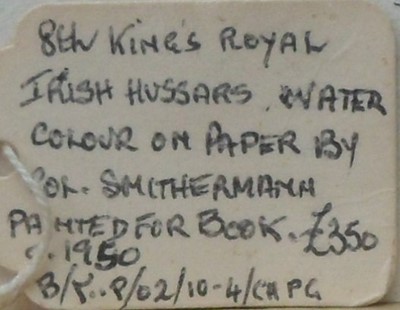 8th KING'S ROYAL
IRISH HUSSARS. WATER
COLOUR ON PAPER BY
COL. SMITHERMANN
PAINTED FOR BOOK. £350
c. 1950
B/Y..P/02/10-4/CHPG